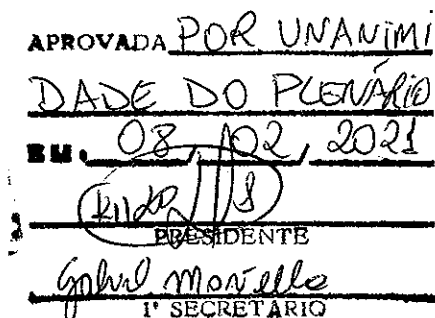 APROVADA POR UNANIMI
DADE DO PLENÁRIO
EM: 08/02/2021
PRESIDENTE
1º SECRETARIO